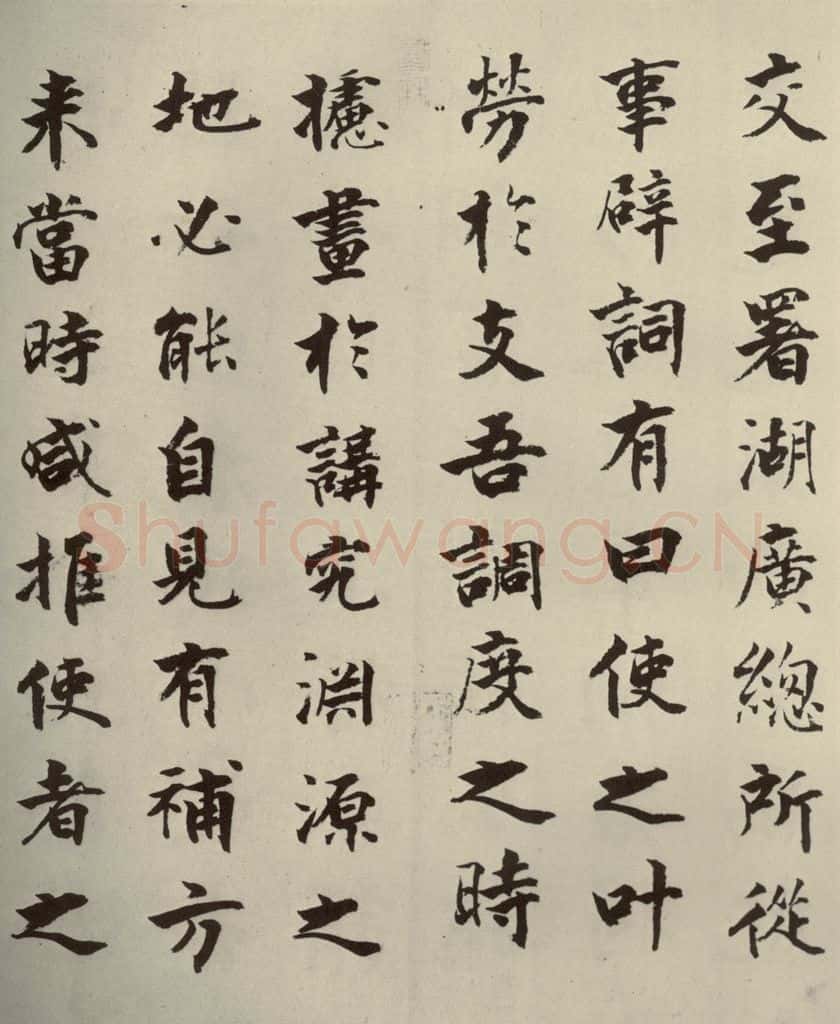 交至署湖廣總所從
事辟詞有曰使之叶
勞於支吾調度之時
攄畫於講究淵源之
地必能自見有補方
来當時咸推使者之
Shufawang.CN